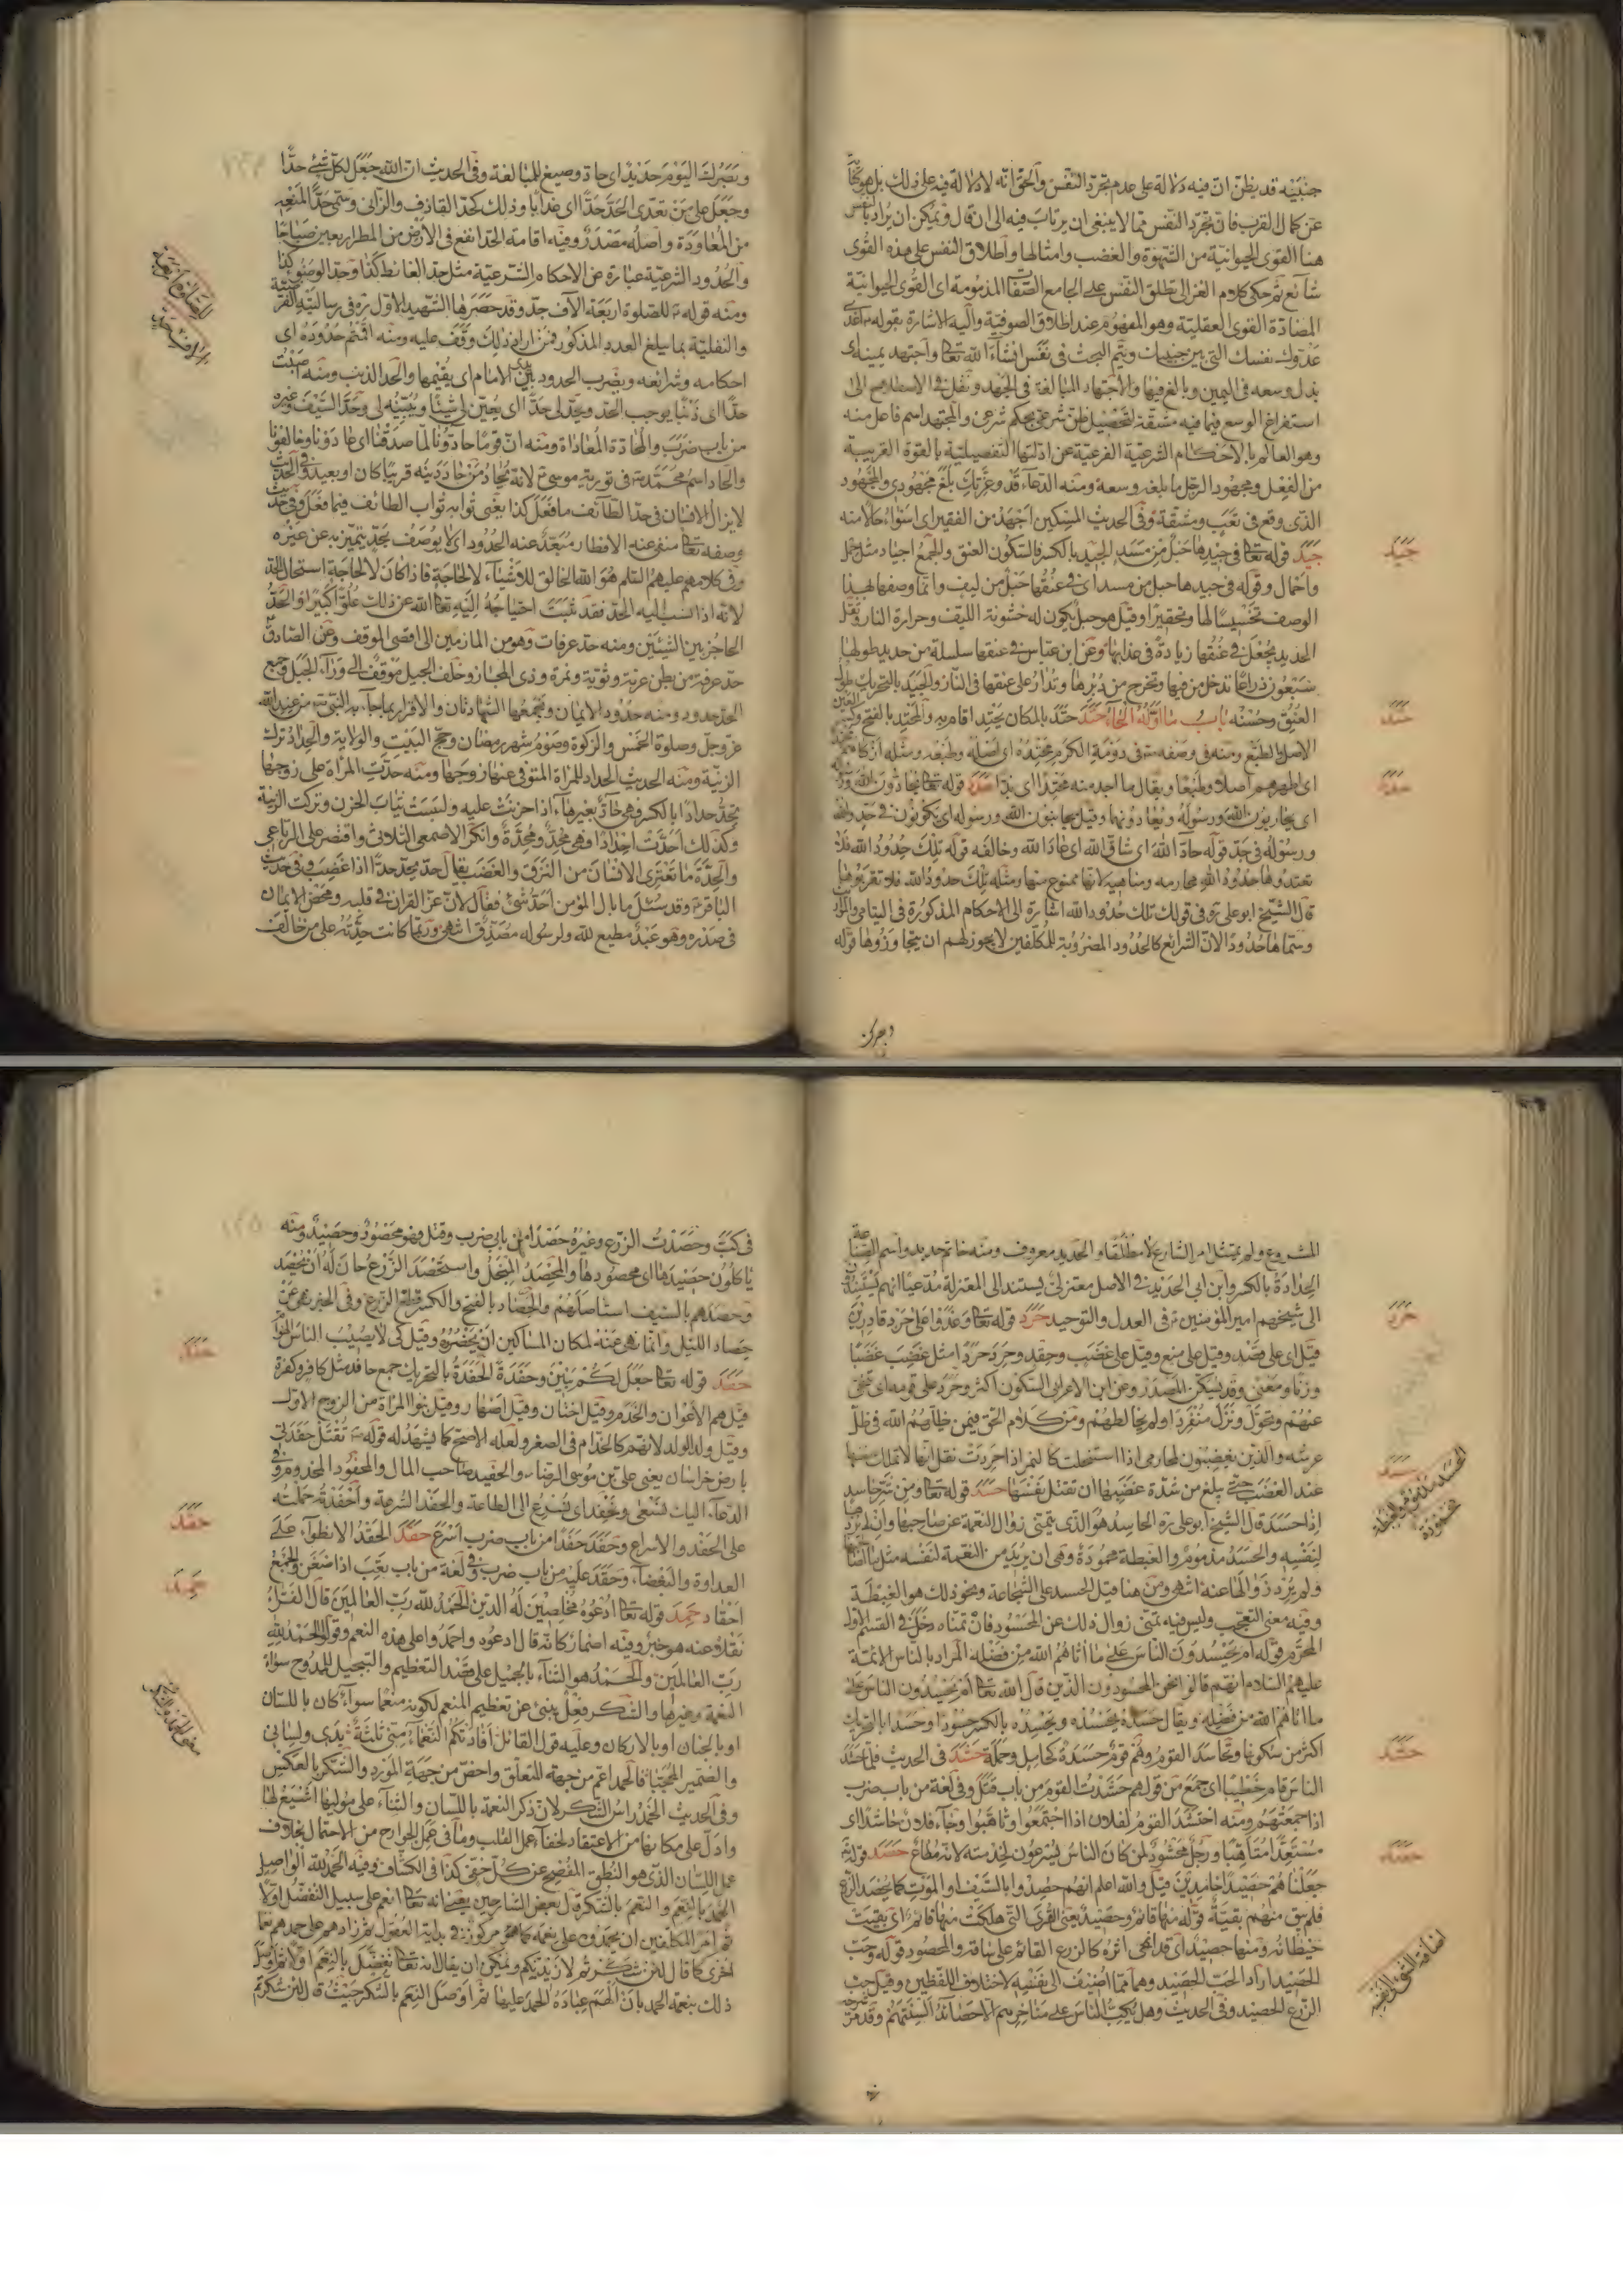 جنبيه قد يظن ان فيه دلالة على عدم تجرد النفس والحق انه لا دلالة فيه على ذلك بل هو كناية
عن كمال القرب فان تجرد النفس مما لا ينبغى ان يرتاب فيه الى ان قال ويمكن ان يراد بالنفس
هنا القوى الحيوانية من الشهوة والغضب وامثالها واطلاق النفس على هذه القوى
شائع ثم حكى كلام الغزالى تطلق النفس على الجامع للصفات المذمومة اى القوى الحيوانية
المضادة القوى العقلية وهو المفهوم عند اطلاق الصوفية واليه الاشارة بقوله اعدى
عدوك نفسك التى بين جنبيك ويتم البحث فى نفس انشاء الله تعالى واجتهد يمينه اى
بذل وسعه فى اليمين وبالغ فيها والاجتهاد المبالغة فى الجهد ونقل فى الاصطلاح الى
استفراغ الوسع فيما فيه مشقة لتحصيل ظن شرعى بحكم شرعى والمجتهد اسم فاعل منه
وهو العالم بالاحكام الشرعية الفرعية عن ادلتها التفصيلية بالقوة القريبة
من الفعل ومجهود الرجل ما بلغه وسعه ومنه الدعاء قد وعزتك بلغ مجهودى والمجهود
الذى وقع فى تعب ومشقة وفى الحديث المسكين اجهد من الفقير اى اسوء حالا منه
جيد قوله تعالى فى جيدها حبل من مسد الجيد بالكسر فالسكون العنق والجمع اجياد مثل حمل
واحمال وقوله فى جيدها حبل من مسد اى فى عنقها حبل من ليف وانما وصفها بهذا
الوصف تخسيسا لها وتحقيرا وقيل هو حبل يكون له خشونة الليف وحرارة النار وثقل
الحديد يجعل فى عنقها زيادة فى عذابها وعن ابن عباس فى عنقها سلسلة من حديد طولها
سبعون ذراعا تدخل من فيها وتخرج من دبرها وتدار على عنقها فى النار والجيد بالتحريك طول
العنق وحسنه باب ما اوله الحاء حتد حتد بالمكان يحتد اقام به والمحتد بالفتح وكسر
الاصل والطبع ومنه فى وصفه فى دومة الكرم محتده اى اصله وطبعه ومثله
اى اطهرهم اصلا وطبعا ويقال ما اجد منه محتدا اى بدا حدد قوله تعالى يحادون الله ورسوله
اى يحاربون الله ورسوله ويعادونهما وقيل يحادون الله ورسوله اى يكونون فى حد والله
ورسوله فى حد قوله حاد الله اى شاق الله اى عادا الله وخالفه قوله تلك حدود الله فلا
تعتدوها حدود الله محارمه ومناهيه لانها ممنوع منها ومثله تلك حدود الله فلا تقربوها
قال الشيخ ابو على فى قوله تلك حدود الله اشارة الى الاحكام المذكورة فى اليتامى والمواريث
وسماها حدودا لان الشرائع كالحدود المضروبة للمكلفين لا يجوز لهم ان يتجاوزوها قوله
جيد
حتد
حدد
وبصرك اليوم حديد اى حاد وصيغ للمبالغة وفى الحديث ان الله جعل لكل شئ حدا
وجعل على من تعدى الحد حدا اى عذابا وذلك كحد القاذف والزانى وسمى حدا لمنعه
من المعاودة واصله مصدر وفيه اقامة الحد انفع فى الارض من المطر اربعين صباحا
والحدود الشرعية عبارة عن الاحكام الشرعية مثل حد الغائط كذا وحد الوضوء كذا
ومنه قوله للصلوة اربعة الآف حد وقد حصرها الشهيد الاول ره فى رسالتيه الفرضية
والنفلية بما يبلغ العدد المذكور فمن اراد ذلك وقف عليه ومنه اقمتم حدوده اى
احكامه وشرائعه ويضرب الحدود بين يدى الامام اى يقيمها والحد الذنب ومنه اصبت
حدا اى ذنبا يوجب الحد ويحد لى حدا اى يعين لى شيئا ويبينه لى وحد السيف وغيره
من باب ضرب والمحادة المعاداة ومنه ان قوما حادونا لما صدقنا اى عادونا وخالفونا
والحاد اسم محمد فى تورية موسى لانه يحاد من حاد دينه قريبا كان او بعيدا وفى الحديث
لا يزال الانسان فى حد الطائف ما فعل كذا يعنى ثوابه ثواب الطائف فيما فعل وفى حديث
وصفه تعالى منفى عنه الاقطار مبعد عنه الحدود اى لا يوصف بحد يتميز به عن غيره
وفى كلامهم عليهم السلم هو الله الخالق للاشياء لا لحاجة فاذا كان لا لحاجة استحال الحد
لانه اذا نسب اليه الحد فقد ثبت احتياجه اليه تعالى الله عن ذلك علوا كبيرا والحد
الحاجز بين الشيئين ومنه حد عرفات وهو من المازمين الى اقصى الموقف وعن الصادق
حد عرفة من بطن عرنة وثوية ونمرة وذى المجاز وخلف الجبل موقف الى وراء الجبل وجمع
الحد حدود ومنه حدود الايمان ويجمعها الشهادتان والاقرار بما جاء به النبى من عند الله
عز وجل وصلوة الخمس والزكوة وصوم شهر رمضان وحج البيت والولاية والحداد ترك
الزينة ومنه الحديث الحداد للمراة المتوفى عنها زوجها ومنه حدت المراة على زوجها
تحد حدادا بالكسر فهى حاد بغيرهاء اذا حزنت عليه ولبست ثياب الحزن وتركت الزينة
وكذلك احدت احدادا وهى محد ومحدة وانكر الاصمعى الثلاثى واقتصر على الرباعى
والحدة ما تعترى الانسان من النزق والغضب يقال حد يحد حدا اذا غضب وفى حديث
الباقر وقد سئل ما بال المؤمن احد شئ فقال لان عز القران فى قلبه ومحض الايمان
فى صدره وهو عبد مطيع لله ولرسوله مصدق انتهى وربما كانت حدته على من خالف
المشروع ولم يمتثل امر الشارع لا مطلقا والحديد معروف ومنه خاتم حديد واسم الصناعة
الحدادة بالكسر وابن ابى الحديد فى الاصل معتزلى يستند الى المعتزلة مدعيا انهم يستندون
الى شيخهم امير المؤمنين فى العدل والتوحيد حرد قوله تعالى وغدوا على حرد قادرين
قيل اى على قصد وقيل على منع وقيل على غضب وحقد وحرد حردا مثل غضب غضبا
وزنا ومعنى وقد يسكن المصدر وعن ابن الاعرابى السكون اكثر وحرد على قومه اى تنحى
عنهم وتحول ونزل منفردا ولم يخالطهم ومن كلام الحق فيمن يظلهم الله فى ظل
عرشه والذين يغضبون لمحارمى اذا استحلت كالنمر اذا حردت نقل انها لا تملك نفسها
عند الغضب حتى يبلغ من شدة غضبها ان تقتل نفسها حسد قوله تعالى ومن شر حاسد
اذا حسد قال الشيخ ابو على ره الحاسد هو الذى يتمنى زوال النعمة عن صاحبها وان لم يردها
لنفسه والحسد مذموم والغبطة محمودة وهى ان يريد من النعمة لنفسه مثل ما لصاحبها
ولم يرد زوالها عنه انتهى ومن هنا قيل الحسد على الشجاعة ونحو ذلك هو الغبطة
وفيه معنى التعجب وليس فيه تمنى زوال ذلك عن المحسود فان تمناه دخل فى القسم الاول
المحرم قوله ام يحسدون الناس على ما اتاهم الله من فضله المراد بالناس الائمة
عليهم السلام انهم قالوا نحن المحسودون الذين قال الله تعالى ام يحسدون الناس على
ما اتاهم الله من فضله ويقال حسده يحسده ويحسده بالكسر حسودا وحسدا بالتحريك
اكثر من سكونها وتحاسد القوم وهم قوم حسدة كحامل وحملة حشد فى الحديث فلما حشد
الناس قام خطيبا اى جمع من قولهم حشدت القوم من باب قتل وفى لغة من باب ضرب
اذا جمعتهم ومنه احتشد القوم لفلان اذا اجتمعوا وتاهبوا وجاء فلان حاشدا اى
مستعدا متاهبا ورجل محشود لمن كان الناس يسرعون لخدمته لانه مطاع حصد قوله
جعلناهم حصيدا خامدين قيل والله اعلم انهم حصدوا بالسيف او الموت كما يحصد الزرع
فلم يبق منهم بقية قوله منها قائم وحصيد يعنى القرى التى هلكت منها قائم اى بقيت
حيطانه ومنها حصيد اى قد امحى اثره كالزرع القائم على ساقه والمحصود قوله وحب
الحصيد اراد الحب الحصيد وهما مما اضيف الى نفسه لاختلاف اللفظين وقيل حب
الزرع الحصيد وفى الحديث وهل يكب الناس على مناخرهم الا حصائد السنتهم وقد مر
حرد
حسد
الحسد مذموم والغبطة
محمودة
حشد
حصد
اضافة الشئ الى نفسه
فى كبب وحصدت الزرع وغيره حصدا من بابى ضرب وقتل فهو محصود وحصيد ومنه
ياكلون حصيدها اى محصودها والمحصد المنجل واستحصد الزرع حان له ان يحصد
وحصدهم بالسيف استاصلهم والحصاد بالفتح والكسر قطع الزرع وفى الخبر نهى عن
حصاد الليل وانما نهى عنه لمكان المساكين ان يحضروه وقيل كى لا يصيب الناس الهوام
حفد قوله تعالى جعل لكم بنين وحفدة الحفدة بالتحريك جمع حافد مثل كافر وكفرة
قيل هم الاعوان والخدم وقيل اختان وقيل اصهار وقيل بنو المراة من الزوج الاول
وقيل ولد الولد لانهم كالخدام فى الصغر ولعله الاصح كما يشهد له قوله تقتل حفدتى
بارض خراسان يعنى على بن موسى الرضا والحفيد صاحب المال والمحفود المخدوم وفى
الدعاء اليك نسعى ونحفد اى نسرع الى الطاعة والحفد السرعة واحفدته حملته
على الحفد والاسراع وحفد حفدا من باب ضرب اسرع حقد الحقد الانطواء على
العداوة والبغضاء وحقد عليه من باب ضرب وفى لغة من باب تعب اذا ضغن والجمع
احقاد حمد قوله تعالى ادعوه مخلصين له الدين الحمد لله رب العالمين قال الفراء
نقلا عنه هو خبر وفيه اضمار كانه قال ادعوه واحمدوا على هذه النعم وقولوا الحمد لله
رب العالمين والحمد هو الثناء بالجميل على قصد التعظيم والتبجيل للممدوح سواء
النعمة وغيرها والشكر فعل ينبئ عن تعظيم المنعم لكونه منعما سواء كان باللسان
او بالجنان او بالاركان وعليه قول القائل افادتكم النعماء منى ثلثة يدى ولسانى
والضمير المحجبا فالحمد اعم من جهة المتعلق واخص من جهة المورد والشكر بالعكس
وفى الحديث الحمد راس الشكر لان ذكر النعمة باللسان والثناء على موليها اشيع لها
وادل على مكانها من الاعتقاد لخفاء عمل القلب وما فى عمل الجوارح من الاحتمال بخلاف
عمل اللسان الذى هو النطق المفصح عن كل خفى كذا فى الكشاف وفيه الحمد لله الواصل
الحمد بالنعم والنعم بالشكر قال بعض الشارحين يعنى انه تعالى انعم على سبيل التفضل اولا
ثم امر المكلفين ان يحمدوه على نعمه كما هو مركوز فى بداية العقول ثم زادهم على حمدهم نعما
اخرى كما قال لئن شكرتم لازيدنكم ويمكن ان يقال انه تعالى تفضل بالنعم اولا ثم وصل
ذلك بنعمة الحمد بان الهم عباده الحمد عليها ثم اوصل النعم بالشكر حيث قال لئن شكرتم
حفد
حقد
حمد
معنى الحمد والشكر